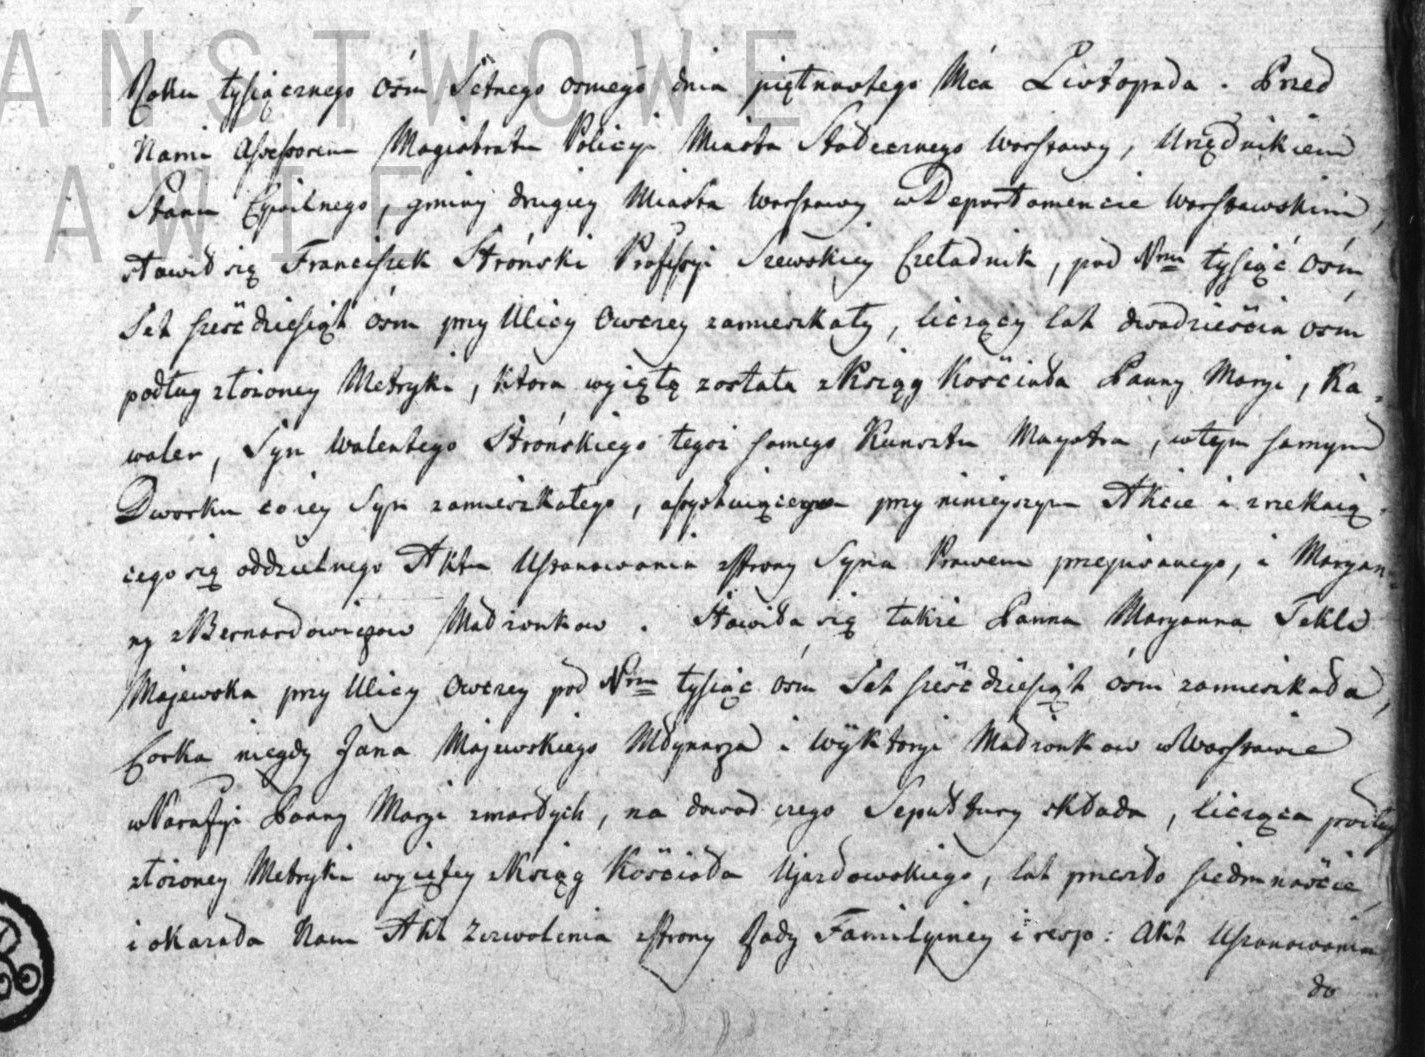 AŃSTWOWE
AWIE
Roku tysiącznego óśm Setnego osmego dnia piętnastego Mca Listopada. Przed
Nami Assessorem Magistratu Policyi Miasta Stołecznego Warszawy, Urzędnikiem
Stanu Cywilnego, gminy drugiey Miasta Warszawy w Departamencie Warszawskim,
stawił się Franciszek Stróński Professyi Szewskiey Czeladnik, pod Nrm tysiąć óśm
Set sześćdziesiąt óśm przy Ulicy Owczey zamieszkały, liczący lat dwadzieścia óśm
podług złożoney Metryki, ktora wyiętą została z Ksiąg Kościoła Panny Maryi, Ka=
waler, Syn Walentego Strońskiego tegoż samego Kunsztu Maystra, w tym samym
Dworku co iey Syn zamieszkałego, assystuiącego przy ninieyszym Akcie i zrzekaią=
cego się oddzielnego Aktu Uszanowania z strony Syna Prawem przepisanego, i Maryan=
ny z Bernardowiczow Małżonkow. Stawiła się także Panna Maryanna Tekla
Majewska przy Ulicy Owczey pod Nrm tysiąc óśm Set sześćdziesiąt óśm zamieszkała,
Corka niegdy Jana Majewskiego Młynarza i Wyktoryi Małżonkow w Warszawie
w Parafyi Panny Maryi zmarłych, na dowod czego Sepultury składa, licząca podług
złożoney Metryki wyiętey z Ksiąg Kościoła Ujazdowskiego, lat przeszło siedmnaście,
i okazała Nam Akt Zezwolenia z strony Rady Familyiney i resp: Akt Uszanowania
do